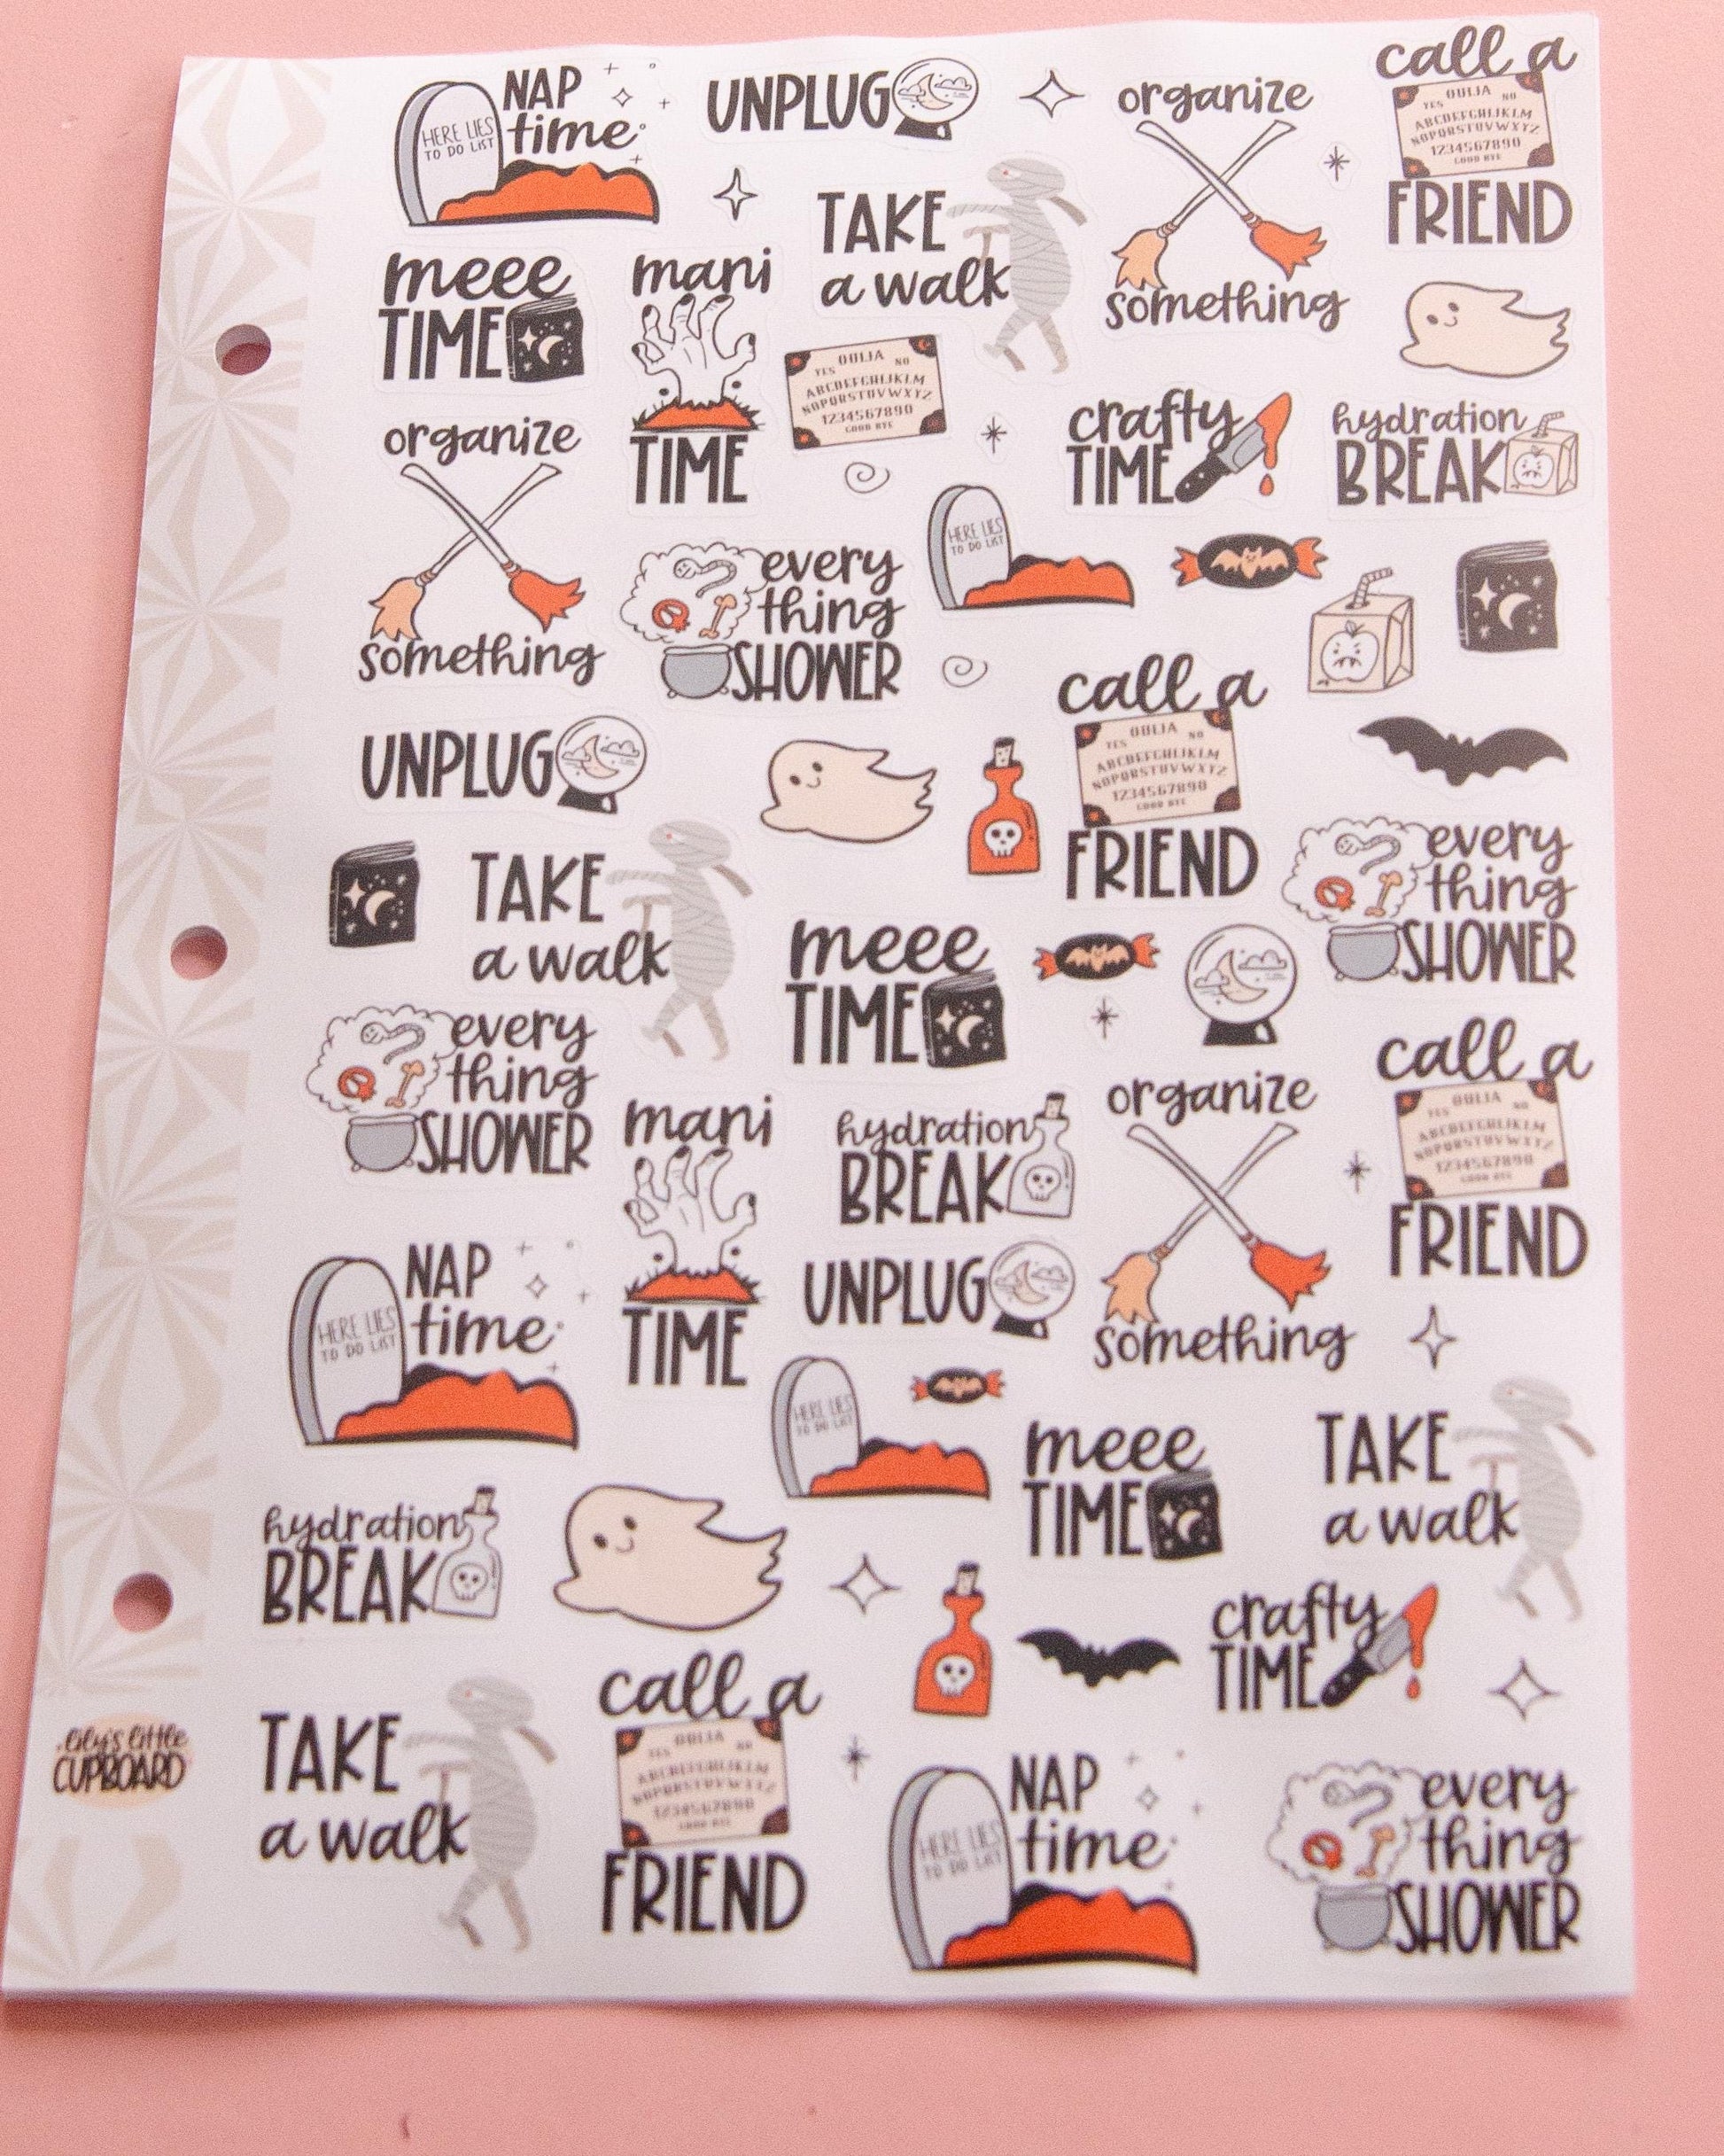 NAP
time
HERE LIES
TO DO LIST
UNPLUG
organize
something
call a
OUIJA
YES NO
ABCDEFGHIJKLM
NOPQRSTUVWXYZ
1234567890
GOOD BYE
FRIEND
TAKE
a walk
meee
TIME
mani
TIME
OUIJA
YES NO
ABCDEFGHIJKLM
NOPQRSTUVWXYZ
1234567890
GOOD BYE
crafty
TIME
hydration
BREAK
organize
something
HERE LIES
TO DO LIST
every
thing
SHOWER
UNPLUG
call a
OUIJA
YES NO
ABCDEFGHIJKLM
NOPQRSTUVWXYZ
1234567890
GOOD BYE
FRIEND
every
thing
SHOWER
TAKE
a walk
meee
TIME
every
thing
SHOWER
mani
TIME
hydration
BREAK
organize
something
call a
OUIJA
YES NO
ABCDEFGHIJKLM
NOPQRSTUVWXYZ
1234567890
GOOD BYE
FRIEND
NAP
time
HERE LIES
TO DO LIST
UNPLUG
HERE LIES
TO DO LIST
meee
TIME
TAKE
a walk
hydration
BREAK
crafty
TIME
lily's little
CUPBOARD
TAKE
a walk
call a
OUIJA
YES NO
ABCDEFGHIJKLM
NOPQRSTUVWXYZ
1234567890
GOOD BYE
FRIEND
NAP
time
HERE LIES
TO DO LIST
every
thing
SHOWER